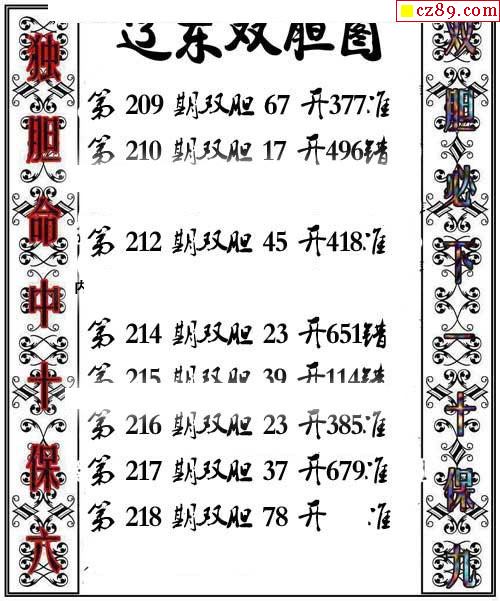 cz89.com
辽东双胆图
独胆命中十保六
双胆必下一十保九
第 209 期双胆 67 开377准
第 210 期双胆 17 开496错
第 212 期双胆 45 开418准
第 214 期双胆 23 开651错
第 215 期双胆 39 开114错
第 216 期双胆 23 开385准
第 217 期双胆 37 开679准
第 218 期双胆 78 开 准